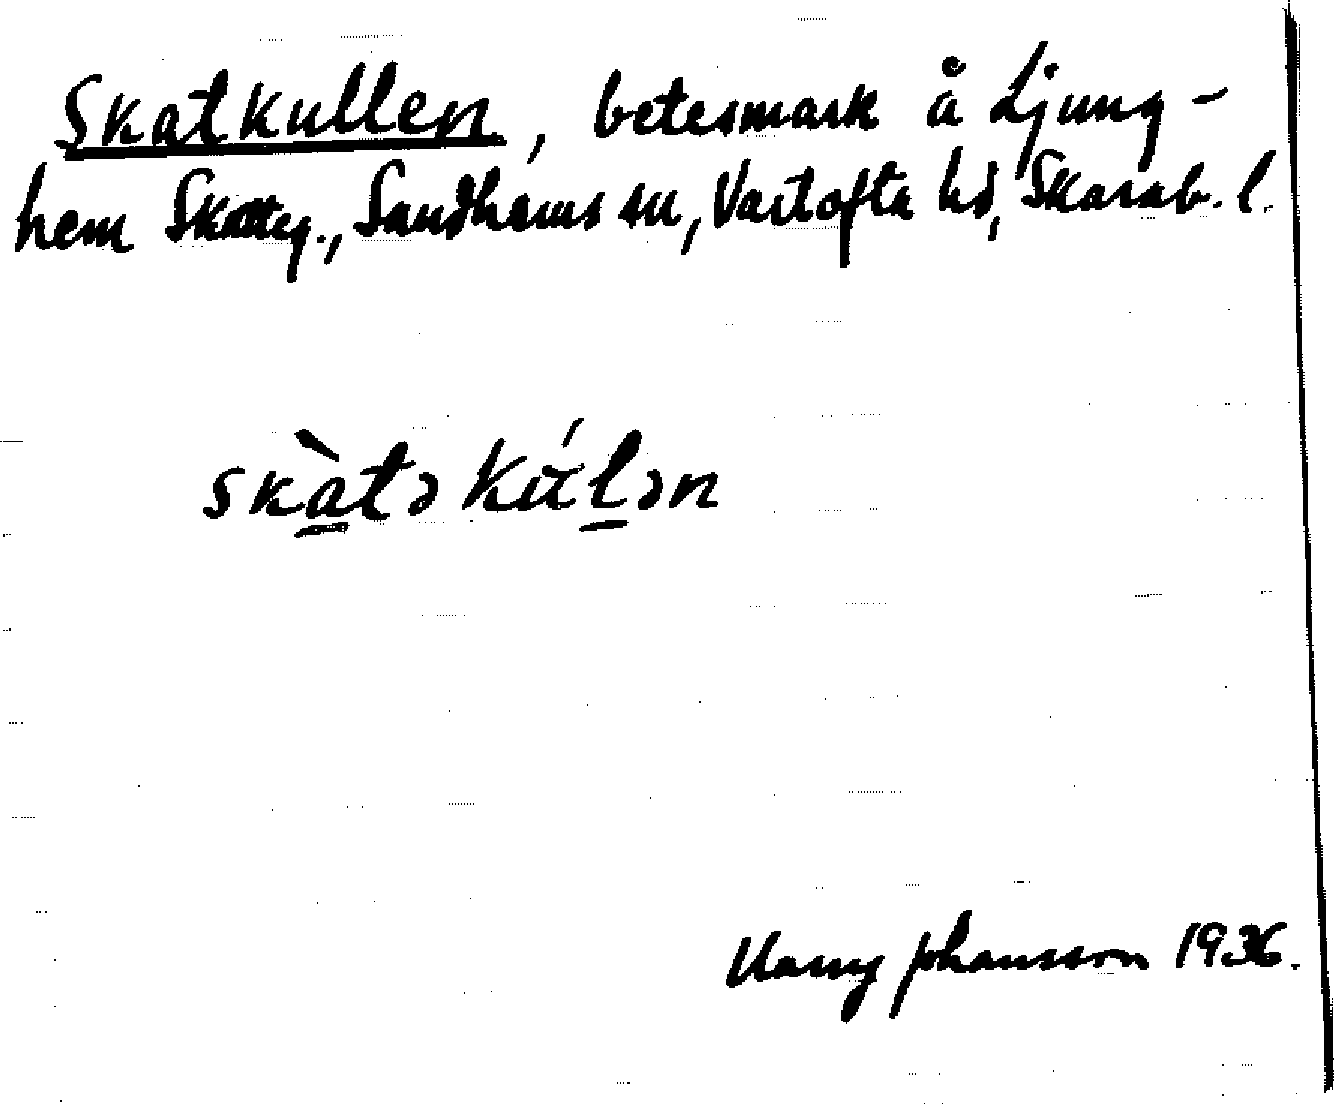 Skatkullen, betesmark å Ljung-
hem Skatteg., Sandhems sn, Vartofta hd, Skarab. l.
skàtə kúlən
Harry Johansson 1936.